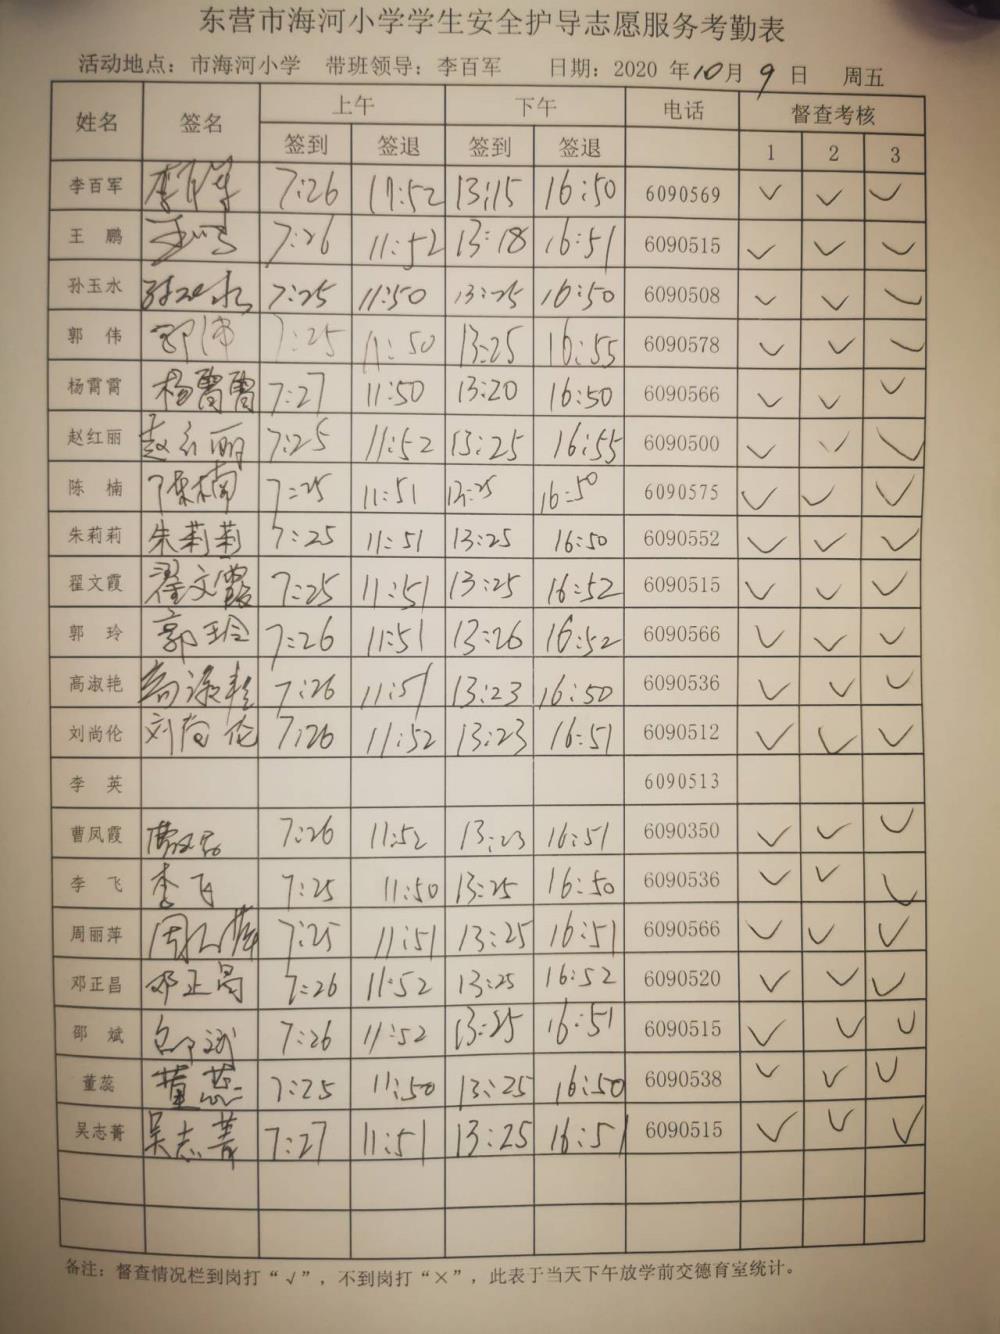 东营市海河小学学生安全护导志愿服务考勤表
活动地点：市海河小学 带班领导：李百军 日期：2020 年10月9日 周五
姓名 签名 上午 下午 电话 督查考核
签到 签退 签到 签退 1 2 3
李百军 李百军 7:26 11:52 13:15 16:50 6090569 ✓ ✓ ✓
王 鹏 王鹏 7:26 11:52 13:18 16:51 6090515 ✓ ✓ ✓
孙玉水 孙玉水 7:25 11:50 13:25 16:50 6090508 ✓ ✓ ✓
郭 伟 郭伟 7:25 11:50 13:25 16:55 6090578 ✓ ✓ ✓
杨霄霄 杨霄霄 7:27 11:50 13:20 16:50 6090566 ✓ ✓ ✓
赵红丽 赵红丽 7:25 11:52 13:25 16:55 6090500 ✓ ✓ ✓
陈 楠 陈楠 7:25 11:51 13:25 16:50 6090575 ✓ ✓ ✓
朱莉莉 朱莉莉 7:25 11:51 13:25 16:50 6090552 ✓ ✓ ✓
翟文霞 翟文霞 7:25 11:51 13:25 16:52 6090515 ✓ ✓ ✓
郭 玲 郭玲 7:26 11:51 13:26 16:52 6090566 ✓ ✓ ✓
高淑艳 高淑艳 7:26 11:51 13:23 16:50 6090536 ✓ ✓ ✓
刘尚伦 刘尚伦 7:26 11:52 13:23 16:51 6090512 ✓ ✓ ✓
李 英 6090513
曹凤霞 曹凤霞 7:26 11:52 13:23 16:51 6090350 ✓ ✓ ✓
李 飞 李飞 7:25 11:50 13:25 16:50 6090536 ✓ ✓ ✓
周丽萍 周丽萍 7:25 11:51 13:25 16:51 6090566 ✓ ✓ ✓
邓正昌 邓正昌 7:26 11:52 13:25 16:52 6090520 ✓ ✓ ✓
邵 斌 邵斌 7:26 11:52 13:25 16:51 6090515 ✓ ✓ ✓
董蕊 董蕊 7:25 11:50 13:25 16:50 6090538 ✓ ✓ ✓
吴志菁 吴志菁 7:27 11:51 13:25 16:51 6090515 ✓ ✓ ✓
备注：督查情况栏到岗打“√”，不到岗打“×”，此表于当天下午放学前交德育室统计。